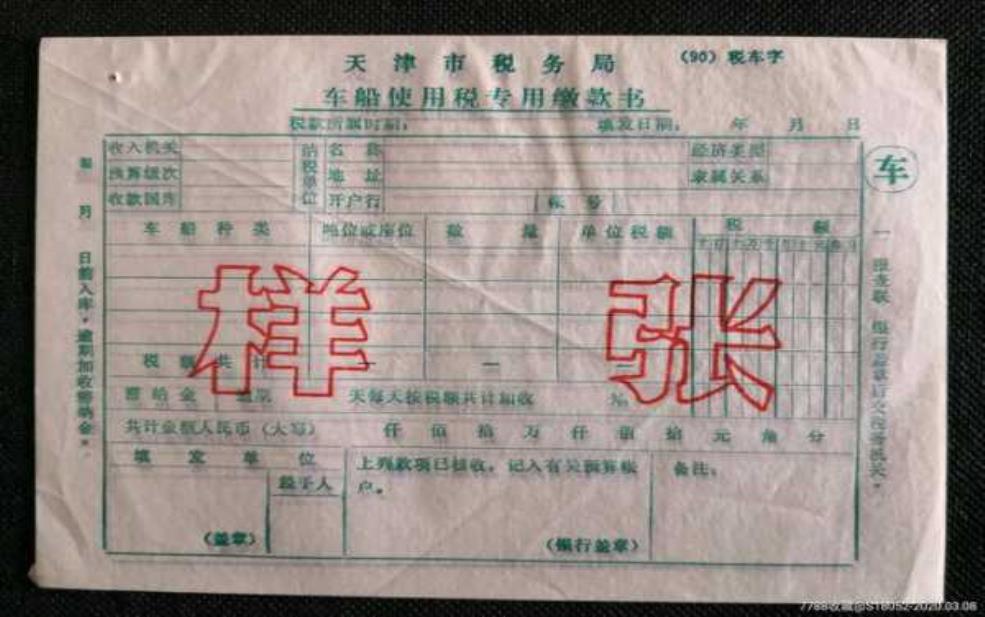 天津市税务局
(90) 税车字
车船使用税专用缴款书
税款所属时期： 填发日期： 年 月 日
收入机关 纳税单位 名称 经济类型
预算级次 地址 隶属关系
收款国库 开户行 帐号
车
车船种类 吨位或座位 数量 单位税额 税额
样张
税额共计 — —
滞纳金 逾期 天每天按税额共计加收
共计金额人民币（大写） 仟佰拾万仟佰拾元角分
填发单位 上列款项已核收，记入有关预算帐户。 备注：
经手人
（盖章） （银行盖章）
月 日前入库，逾期加收滞纳金。
7788收藏@S18052-2020.03.08